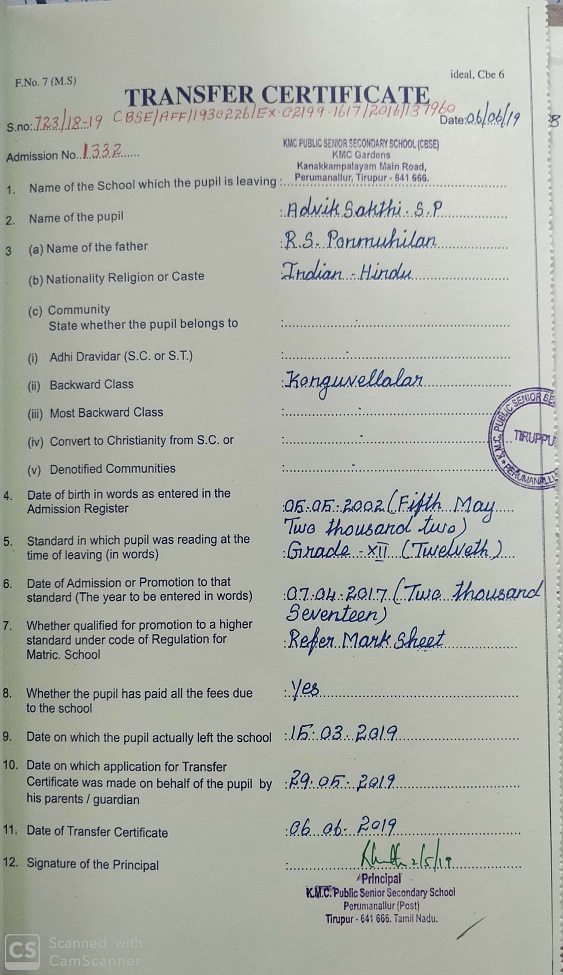 F.No. 7 (M.S)
ideal, Cbe 6
TRANSFER CERTIFICATE
S.no: 723/18-19 CBSE/AFF/1930226/EX-02199-1617/2016/137960 Date: 06/06/19
Admission No. 1332
KMC PUBLIC SENIOR SECONDARY SCHOOL (CBSE)
KMC Gardens
Kanakkampalayam Main Road,
Perumanallur, Tirupur - 641 666.
1. Name of the School which the pupil is leaving :
2. Name of the pupil : Advik Sakthi. S.P
3 (a) Name of the father : R.S. Ponmuhilan
(b) Nationality Religion or Caste : Indian - Hindu
(c) Community
State whether the pupil belongs to :
(i) Adhi Dravidar (S.C. or S.T.) :
(ii) Backward Class : Konguvellalar
(iii) Most Backward Class :
(iv) Convert to Christianity from S.C. or :
(v) Denotified Communities :
K.M.C. PUBLIC SENIOR SE
TIRUPPU
PERUMANALLU
4. Date of birth in words as entered in the
Admission Register : 05.05.2002 (Fifth May
Two thousand two)
5. Standard in which pupil was reading at the
time of leaving (in words) : Grade - XII (Twelveth)
6. Date of Admission or Promotion to that
standard (The year to be entered in words) : 07.04.2017 (Two thousand
Seventeen)
7. Whether qualified for promotion to a higher
standard under code of Regulation for : Refer Mark Sheet
Matric. School
8. Whether the pupil has paid all the fees due : Yes
to the school
9. Date on which the pupil actually left the school : 15.03.2019
10. Date on which application for Transfer
Certificate was made on behalf of the pupil by : 29.05-2019
his parents / guardian
11. Date of Transfer Certificate : 06.06-2019
12. Signature of the Principal : 2/5/19
Principal
K.M.C. Public Senior Secondary School
Perumanallur (Post)
Tirupur - 641 666. Tamil Nadu.
CS Scanned with
CamScanner